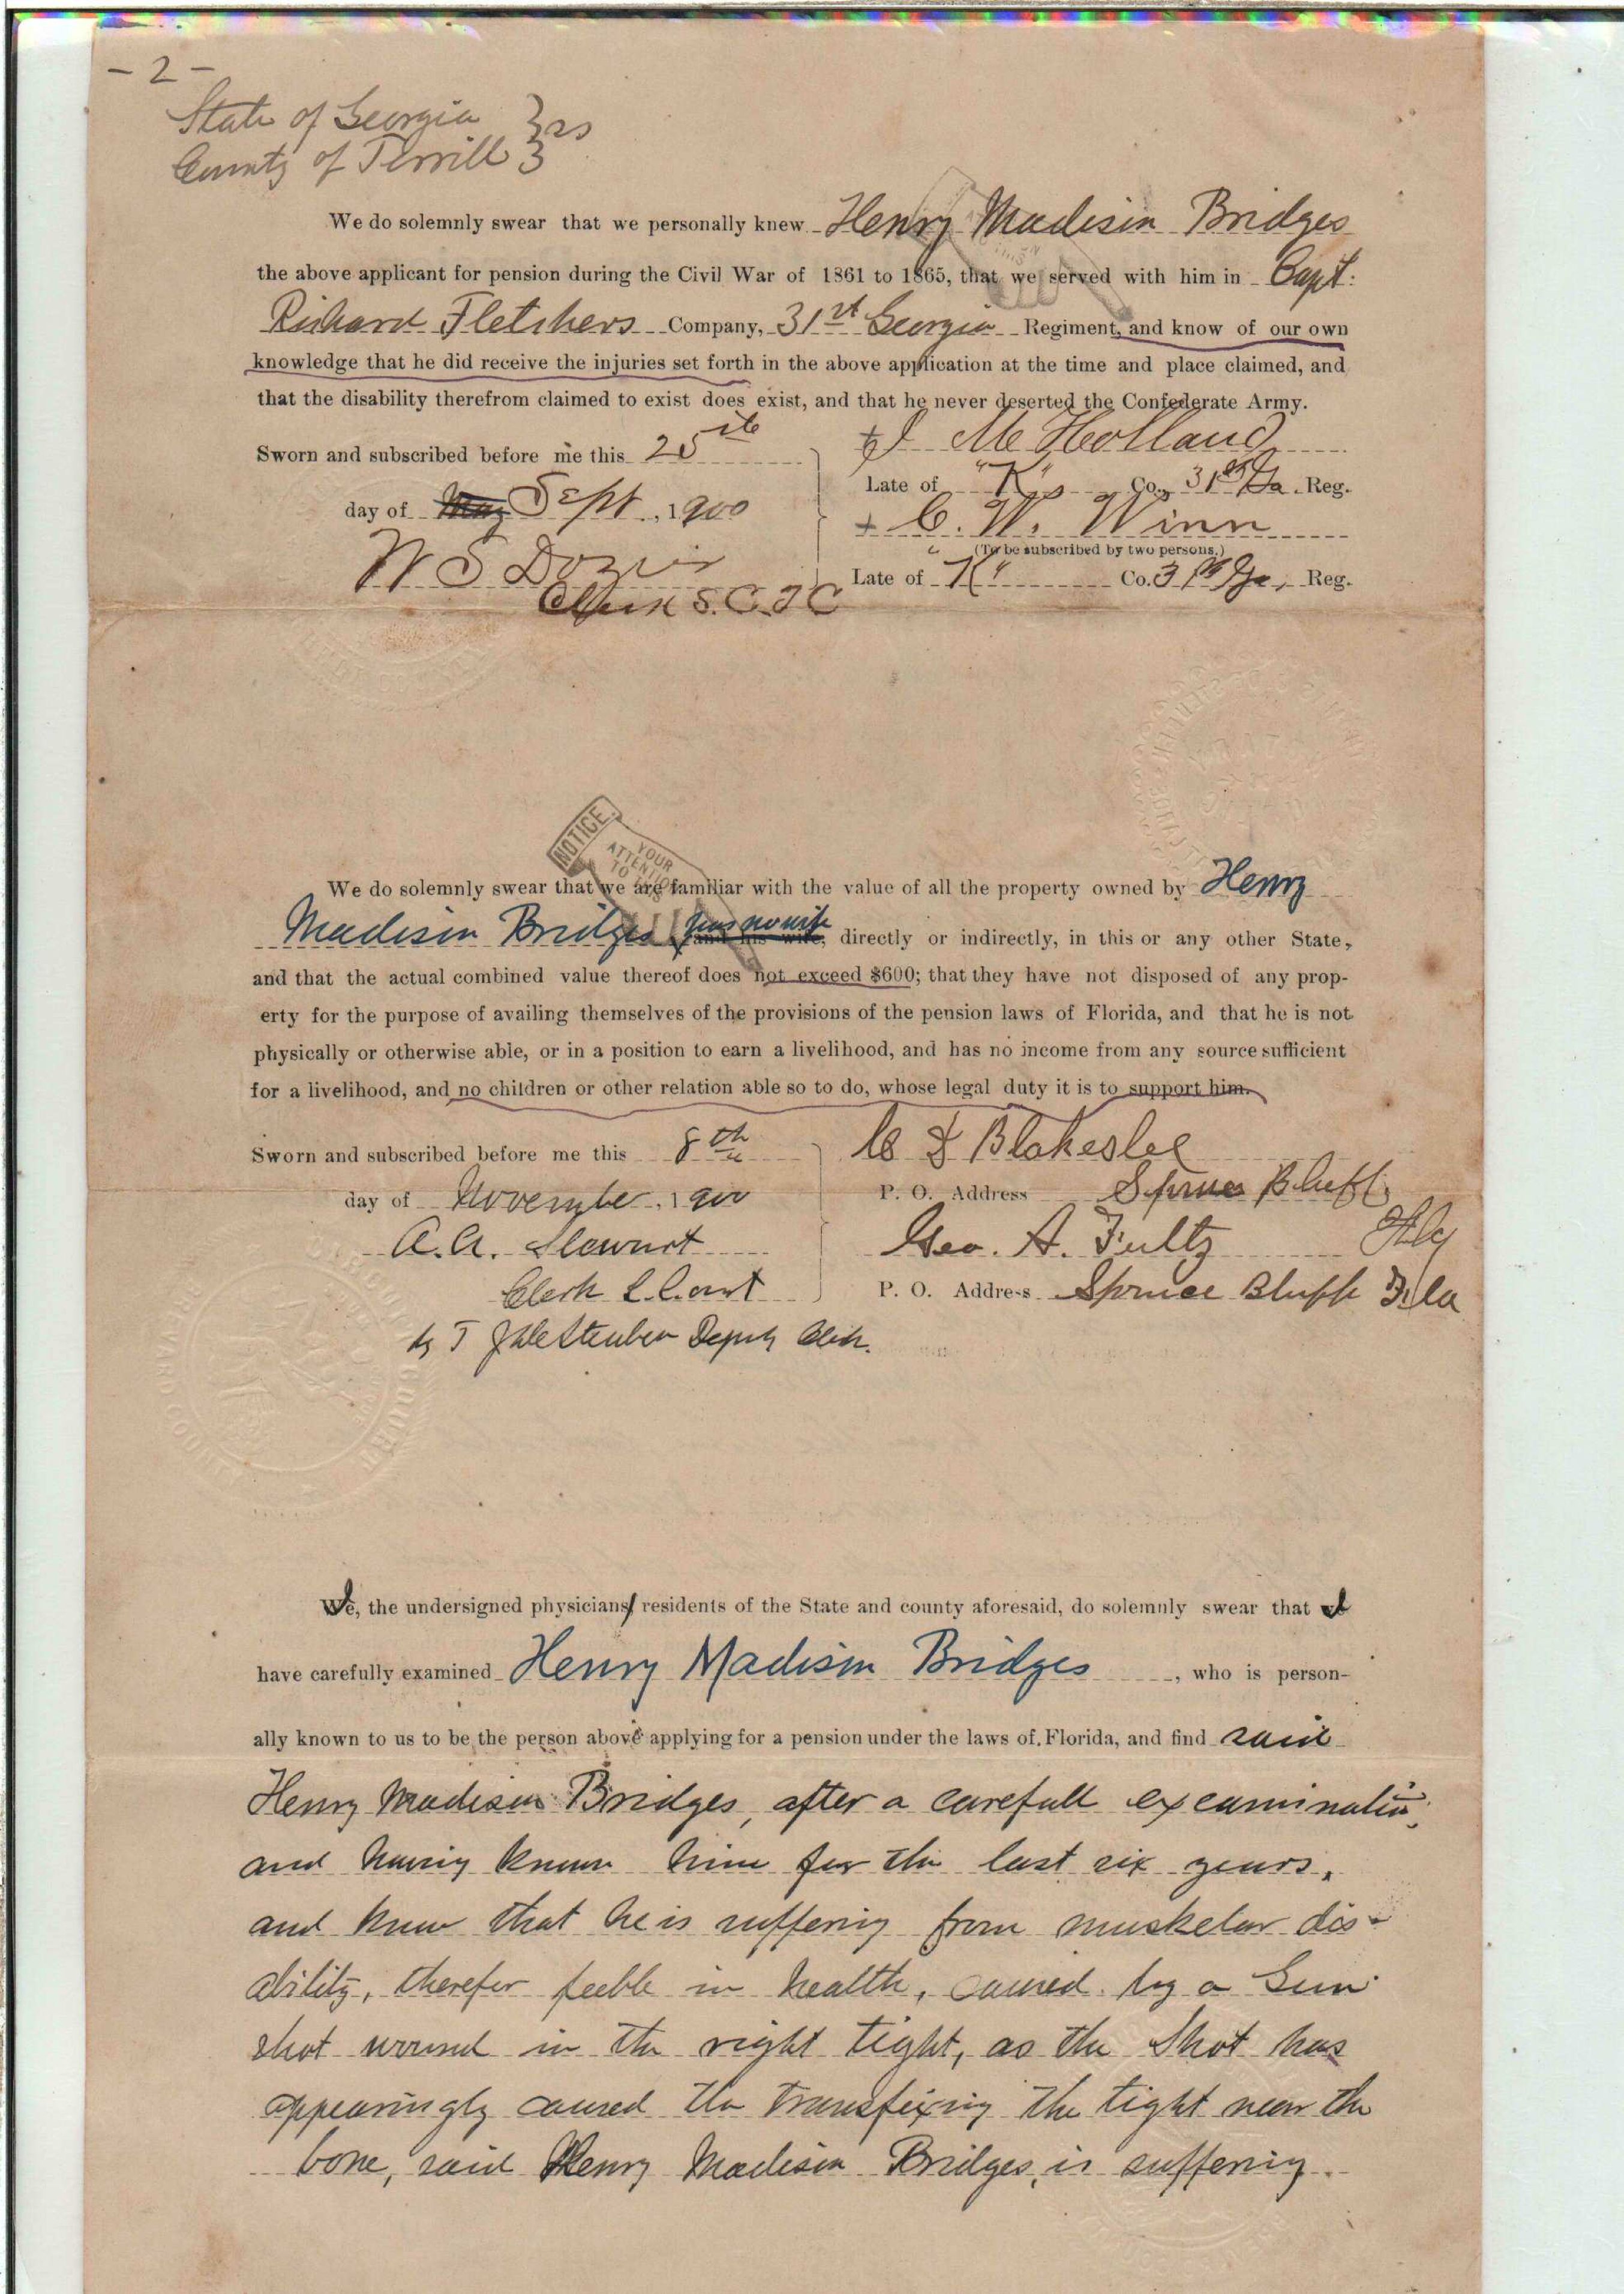 - 2 -
State of Georgia } ss
County of Terrill }
We do solemnly swear that we personally knew Henry Madison Bridges
the above applicant for pension during the Civil War of 1861 to 1865, that we served with him in Capt.
Richard Fletchers Company, 31st Georgia Regiment, and know of our own
knowledge that he did receive the injuries set forth in the above application at the time and place claimed, and
that the disability therefrom claimed to exist does exist, and that he never deserted the Confederate Army.
Sworn and subscribed before me this 25th
day of May Sept, 1900
W S Dozier
Clerk S. C. T C
J M Holland
Late of "K" Co., 31st Ga. Reg.
C. W. Winn
(To be subscribed by two persons.)
Late of "K" Co. 31st Ga, Reg.
NOTICE.
YOUR
ATTENTION
TO
We do solemnly swear that we are familiar with the value of all the property owned by Henry
Madison Bridges, has no wife and his wife, directly or indirectly, in this or any other State,
and that the actual combined value thereof does not exceed $600; that they have not disposed of any prop-
erty for the purpose of availing themselves of the provisions of the pension laws of Florida, and that he is not
physically or otherwise able, or in a position to earn a livelihood, and has no income from any source sufficient
for a livelihood, and no children or other relation able so to do, whose legal duty it is to support him.
Sworn and subscribed before me this 8th
day of November, 1900
A. A. Stewart
Clerk C. Court
by Deputy Clerk.
Blakeslee
P. O. Address Spruce Bluff, Fla
Geo. A. Fultz
P. O. Address Spruce Bluff Fla
We, I the undersigned physicians residents of the State and county aforesaid, do solemnly swear that I
have carefully examined Henry Madison Bridges, who is person-
ally known to us to be the person above applying for a pension under the laws of Florida, and find said
Henry Madison Bridges, after a carefull excamination,
and having known him for the last six years,
and know that he is suffering from muskelar dis-
ability, therefor feeble in health, caused by a Gun
shot wound in the right tight, as the shot has
appearingly caused the transfixing the tight near the
bone, said Henry Madison Bridges, is suffering